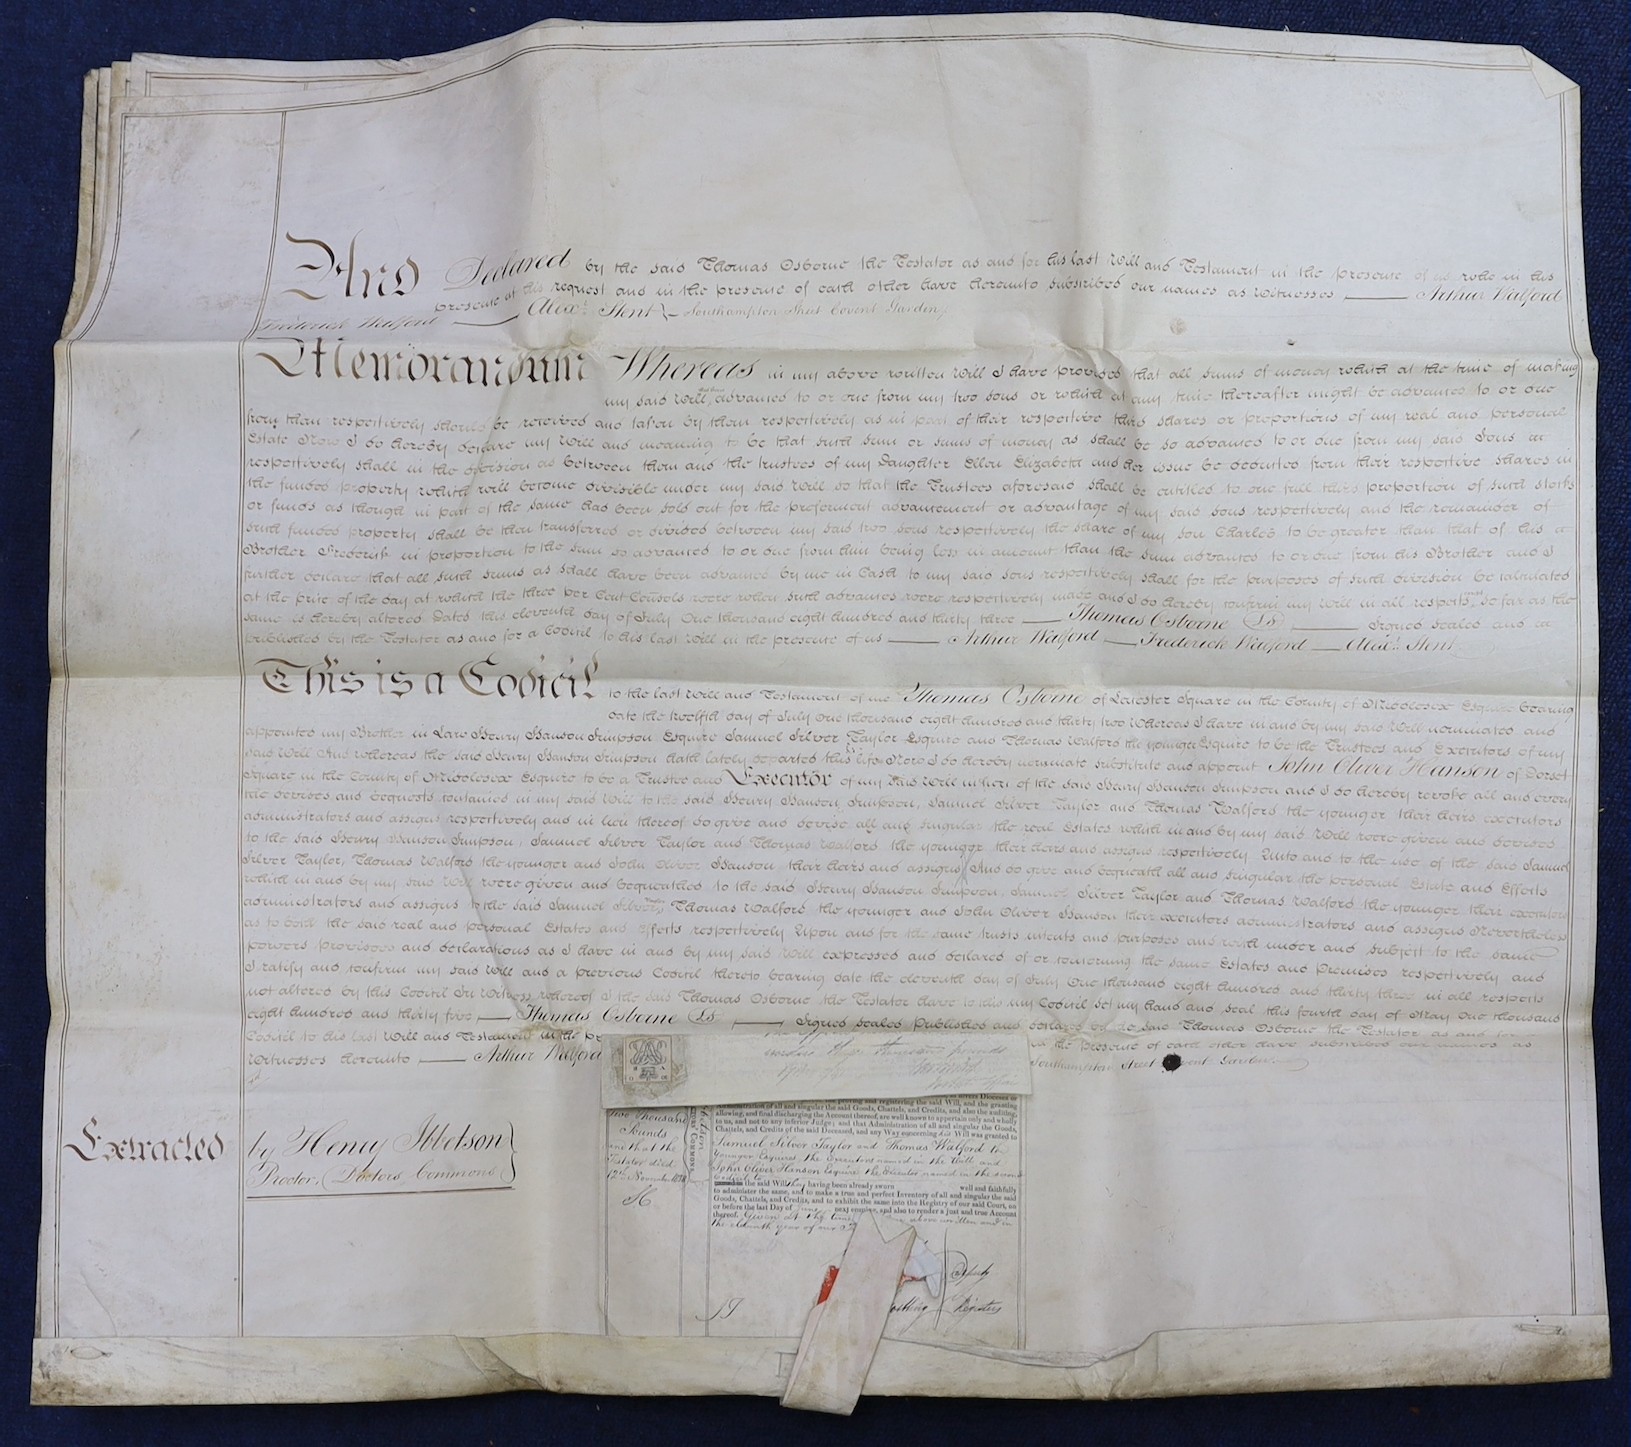 And Declared by the said Thomas Osborne the Testator as and for his last Will and Testament in the presence of us who in his
presence at his request and in the presence of each other have hereunto subscribed our names as witnesses — Arthur Walford
Frederick Walford — Alexr. Stent } Southampton Street Covent Garden
Memorandum Whereas in my above written Will I have provided that all sums of money which at the time of making
my said Will, advanced to or due from my two sons or which at any time thereafter might be advanced to or due
from them respectively should be received and taken by them respectively as in part of their respective third shares or proportions of my real and personal
Estate Now I do hereby declare my Will and meaning to be that such sum or sums of money as shall be so advanced to or due from my said Sons
respectively shall in the division as between them and the trustees of my Daughter Ellen Elizabeth and her issue be deducted from their respective shares in
the funded property which will become divisible under my said Will so that the Trustees aforesaid shall be entitled to one full third proportion of such stocks
or funds as though no part of the same had been sold out for the preferment advancement or advantage of my said sons respectively and the remainder of
such funded property shall be then transferred or divided between my said two sons respectively the share of my son Charles to be greater than that of his
Brother Frederick in proportion to the sum so advanced to or due from him being less in amount than the sum advanced to or due from his Brother and I
further declare that all such sums as shall have been advanced by me in Cash to my said sons respectively shall for the purposes of such division be calculated
at the price of the day at which the three per Cent Consols were when such advances were respectively made and I do hereby confirm my Will in all respects so far as the
same is hereby altered Dated this eleventh day of July One thousand eight hundred and thirty three — Thomas Osborne LS — Signed sealed and
published by the Testator as and for a Codicil to his last Will in the presence of us — Arthur Walford — Frederick Walford — Alexr. Stent
This is a Codicil to the last Will and Testament of me Thomas Osborne of Leicester Square in the County of Middlesex Esquire bearing
date the twelfth day of July One thousand eight hundred and thirty two Whereas I have in and by my said Will nominated and
appointed my Brother in Law Henry Hanson Simpson Esquire Samuel Silver Taylor Esquire and Thomas Walford the younger Esquire to be the Trustees and Executors of my
said Will And whereas the said Henry Hanson Simpson hath lately departed this life Now I do hereby nominate substitute and appoint John Oliver Hanson of Dorset
Square in the County of Middlesex Esquire to be a Trustee and Executor of my said Will in lieu of the said Henry Hanson Simpson and I do hereby revoke all and every
the devises and bequests contained in my said Will to the said Henry Hanson Simpson, Samuel Silver Taylor and Thomas Walford the younger their heirs executors
administrators and assigns respectively and in lieu thereof do give and devise all and singular the real Estates which in and by my said Will were given and devised
to the said Henry Hanson Simpson, Samuel Silver Taylor and Thomas Walford the younger their heirs and assigns respectively Unto and to the use of the said Samuel
Silver Taylor, Thomas Walford the younger and John Oliver Hanson their heirs and assigns And do give and bequeath all and singular the personal Estate and Effects
which in and by my said Will were given and bequeathed to the said Henry Hanson Simpson, Samuel Silver Taylor and Thomas Walford the younger their executors
administrators and assigns to the said Samuel Silver Taylor, Thomas Walford the younger and John Oliver Hanson their executors administrators and assigns Nevertheless
as to both the said real and personal Estates and Effects respectively Upon and for the same trusts intents and purposes and with under and subject to the same
powers provisoes and declarations as I have in and by my said Will expressed and declared of or concerning the same Estates and Premises respectively and
I ratify and confirm my said Will and a previous Codicil thereto bearing date the eleventh day of July One thousand eight hundred and thirty three in all respects
not altered by this Codicil In Witness whereof I the said Thomas Osborne the Testator have to this my Codicil set my hand and seal this fourth day of May One thousand
eight hundred and thirty five — Thomas Osborne LS — Signed Sealed Published and declared by the said Thomas Osborne the Testator as and for
Codicil to his last Will and Testament in the the presence of each other have subscribed our names as
Witnesses hereunto — Arthur Walford Southampton Street Covent Garden
thousand pounds
Administration of all and singular the said Goods, Chattels, and Credits, and also the auditing,
allowing, and final discharging the Account thereof, are well known to appertain only and wholly
to us, and not to any inferior Judge; and that Administration of all and singular the Goods,
Chattels, and Credits of the said Deceased, and any Way concerning his Will was granted to
Samuel Silver Taylor and Thomas Walford the
younger Esquires the Executors named in the Will and
John Oliver Hanson Esquire the Executor named in the
Codicil
the said Will they having been already sworn well and faithfully
to administer the same, and to make a true and perfect Inventory of all and singular the said
Goods, Chattels, and Credits, and to exhibit the same into the Registry of our said Court, on
or before the last Day of June next ensuing, and also to render a just and true Account
thereof. Given at the time above written and in
the eleventh year of our
two Thousand
Pounds
and that the
Testator died
12th November 1838
DOCTORS' COMMONS.
Extracted by Henry Ibbetson
Proctor, Doctors Commons
Deputy
Registers